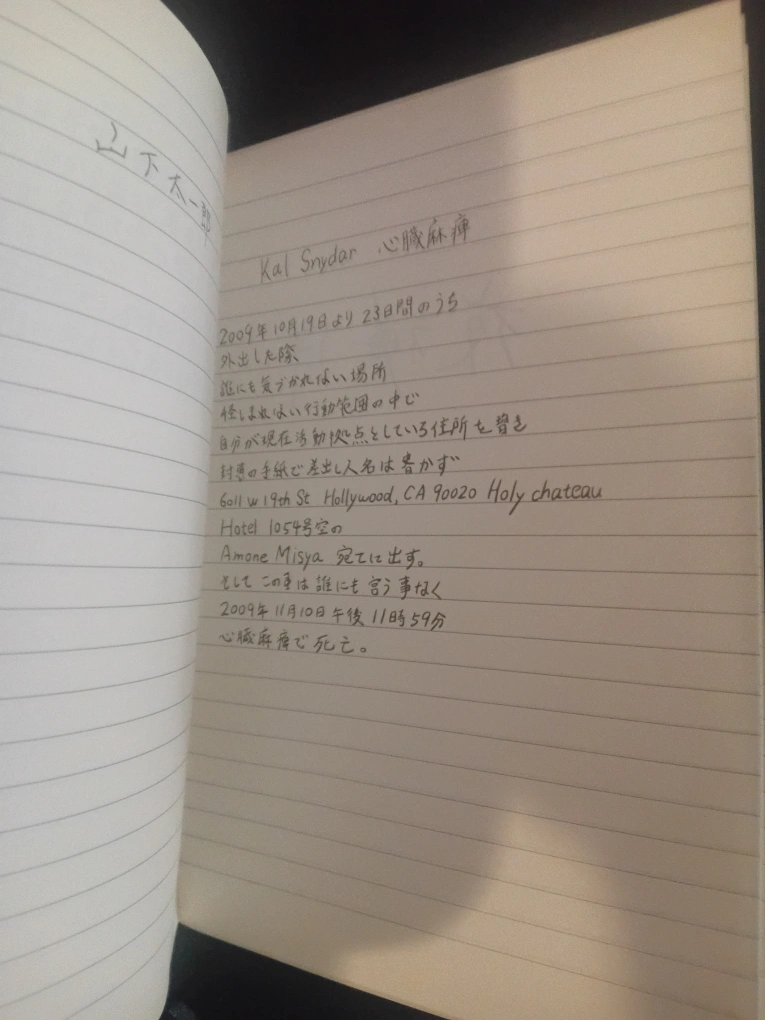 山下太一郎
Kal Snydar 心臓麻痺
2009年10月19日より23日間のうち
外出した際
誰にも気づかれない場所
怪しまれない行動範囲の中で
自分が現在活動拠点としている住所を書き
封書の手紙で差出し人名は書かず
6011 w 19th St Hollywood, CA 90020 Holy chateau
Hotel 1054号室の
Amone Misya 宛てに出す。
そしてこの事は誰にも言う事なく
2009年11月10日午後11時59分
心臓麻痺で死亡。